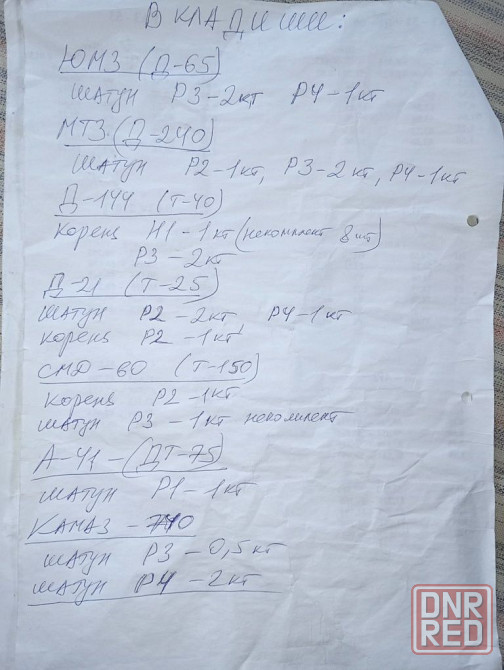 ВКЛАДИШИ:
ЮМЗ (Д-65)
ШАТУН Р3-2кт Р4-1кт
МТЗ (Д-240)
ШАТУН Р2-1кт, Р3-2кт, Р4-1кт
Д-144 (Т-40)
Корень Н1-1кт (некомплект 8шт)
Р3-2кт
Д-21 (Т-25)
шатун Р2-2кт Р4-1кт
корень Р2-1кт
СМД-60 (Т-150)
Корень Р2-1кт
шатун Р3-1кт некомплект
А-41-(ДТ-75)
ШАТУН Р1-1кт
КАМАЗ-740
ШАТУН Р3-0,5кт
ШАТУН Р4-2кт
DNR
RED